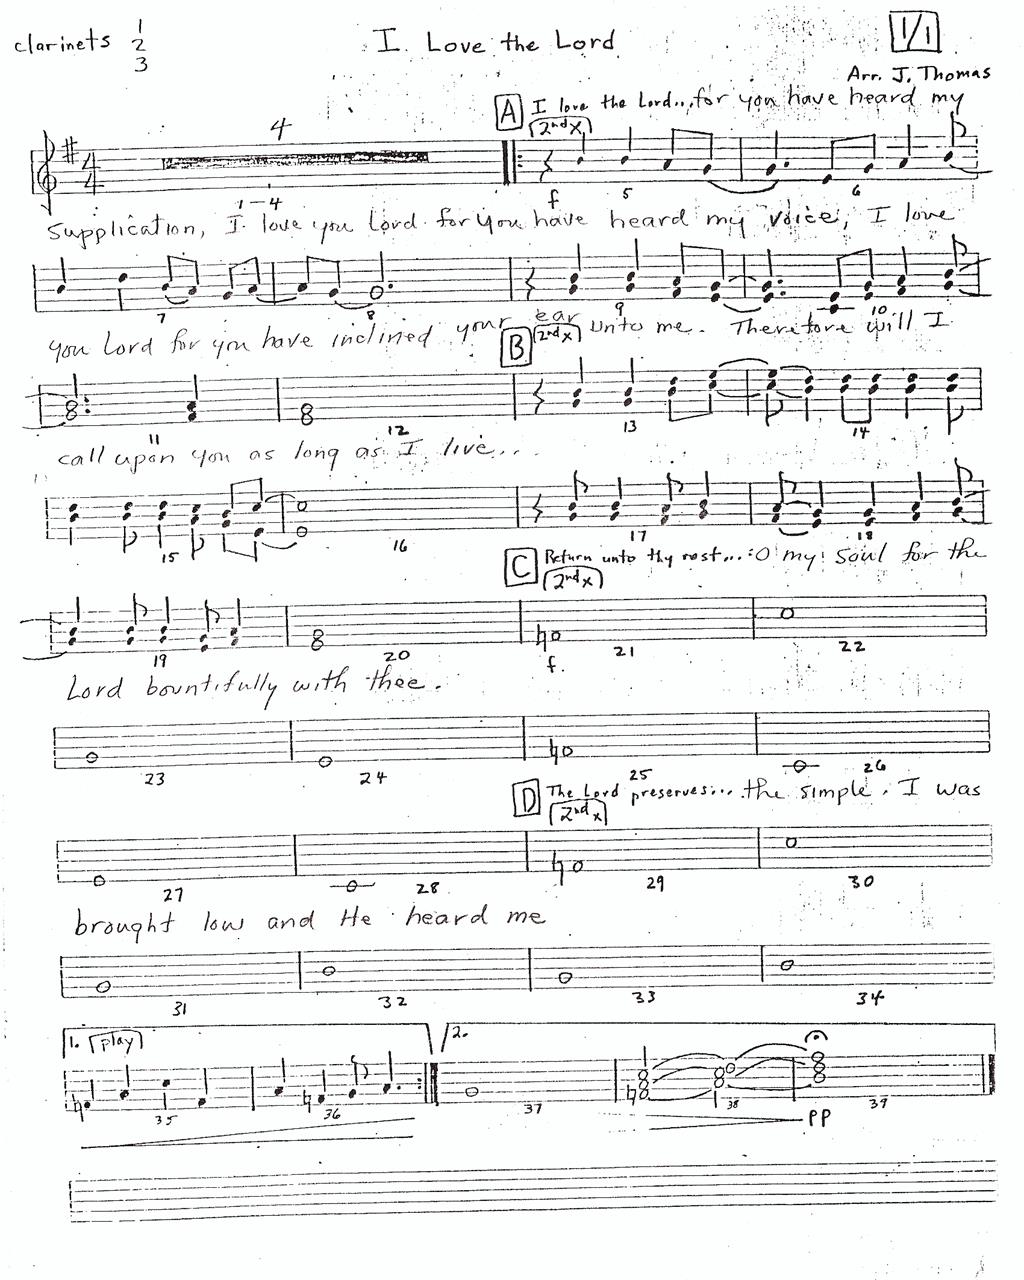 clarinets 1 2 3
I Love the Lord
1/1
Arr. J. Thomas
A I love the Lord... for you have heard my
2nd x
4
4 4
1-4
f 5 6
Supplication, I love you Lord for you have heard my voice, I love
7 8 9 10
you Lord for you have inclined your ear unto me. Therefore will I
B 2nd x
11 12 13 14
call upon you as long as I live...
15 16 17 18
C Return unto thy rest... O my soul for the
2nd x
19 20 21 22
f.
Lord bountifully with thee.
23 24 25 26
D The Lord preserves... the simple. I was
2nd x
27 28 29 30
brought low and He heard me
31 32 33 34
1. play 2.
35 36 37 38 39
pp